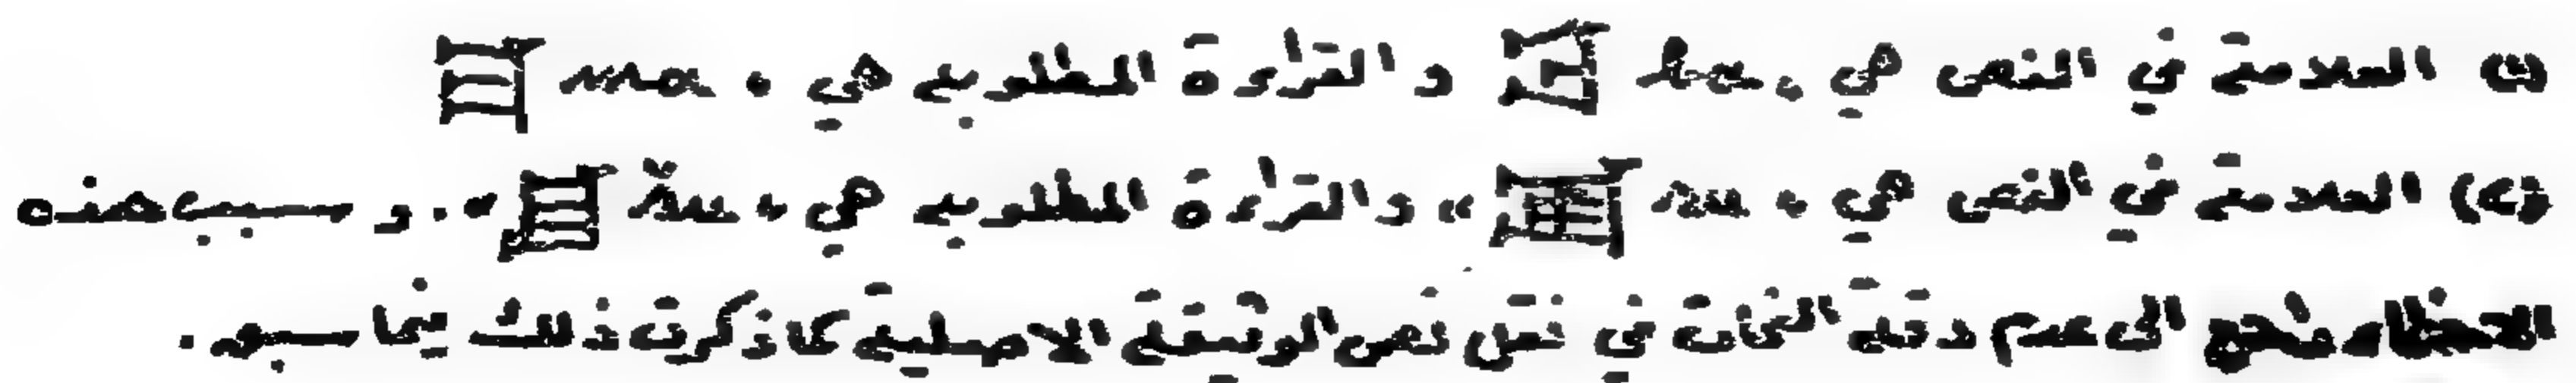 (١) العلامة في النص هي « و القراءة المطلوبة هي « ma
(٢) العلامة في النص هي « » والقراءة المطلوبة هي « ». و سبب هذه
الاخطاء راجع الى عدم دقة النحات في نقل نص الوثيقة الاصلية كما ذكرت ذلك فيما سبق .